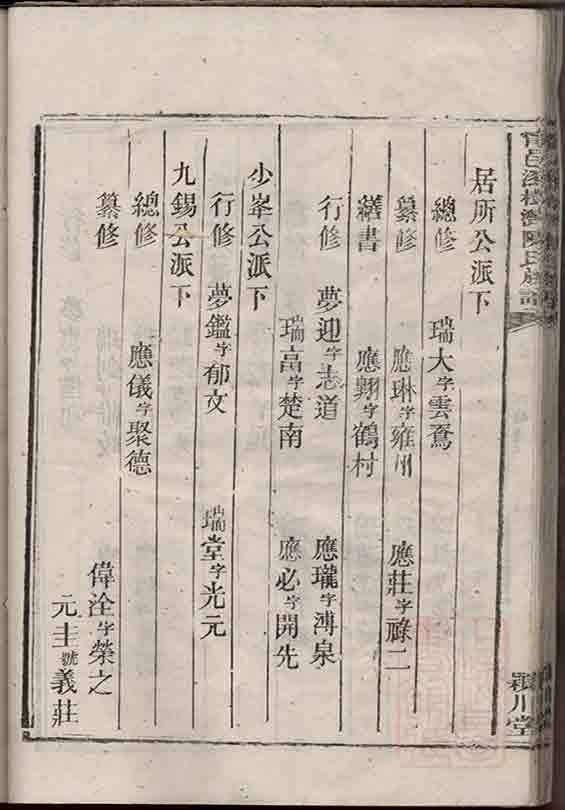 邑溪陳氏族譜
潁川堂
居所公派下
總修 瑞大字雲鴌
纂修 應琳字雍州 應莊字祿二
繕書 應翺字鶴村
行修 夢迎字志道 應瓏字溥泉
瑞高字楚南 應必字開先
少峯公派下
行修 夢鑑字郁文 瑞堂字光元
九錫公派下
總修 應儀字聚德
纂修 偉詮字榮之
元圭號義莊